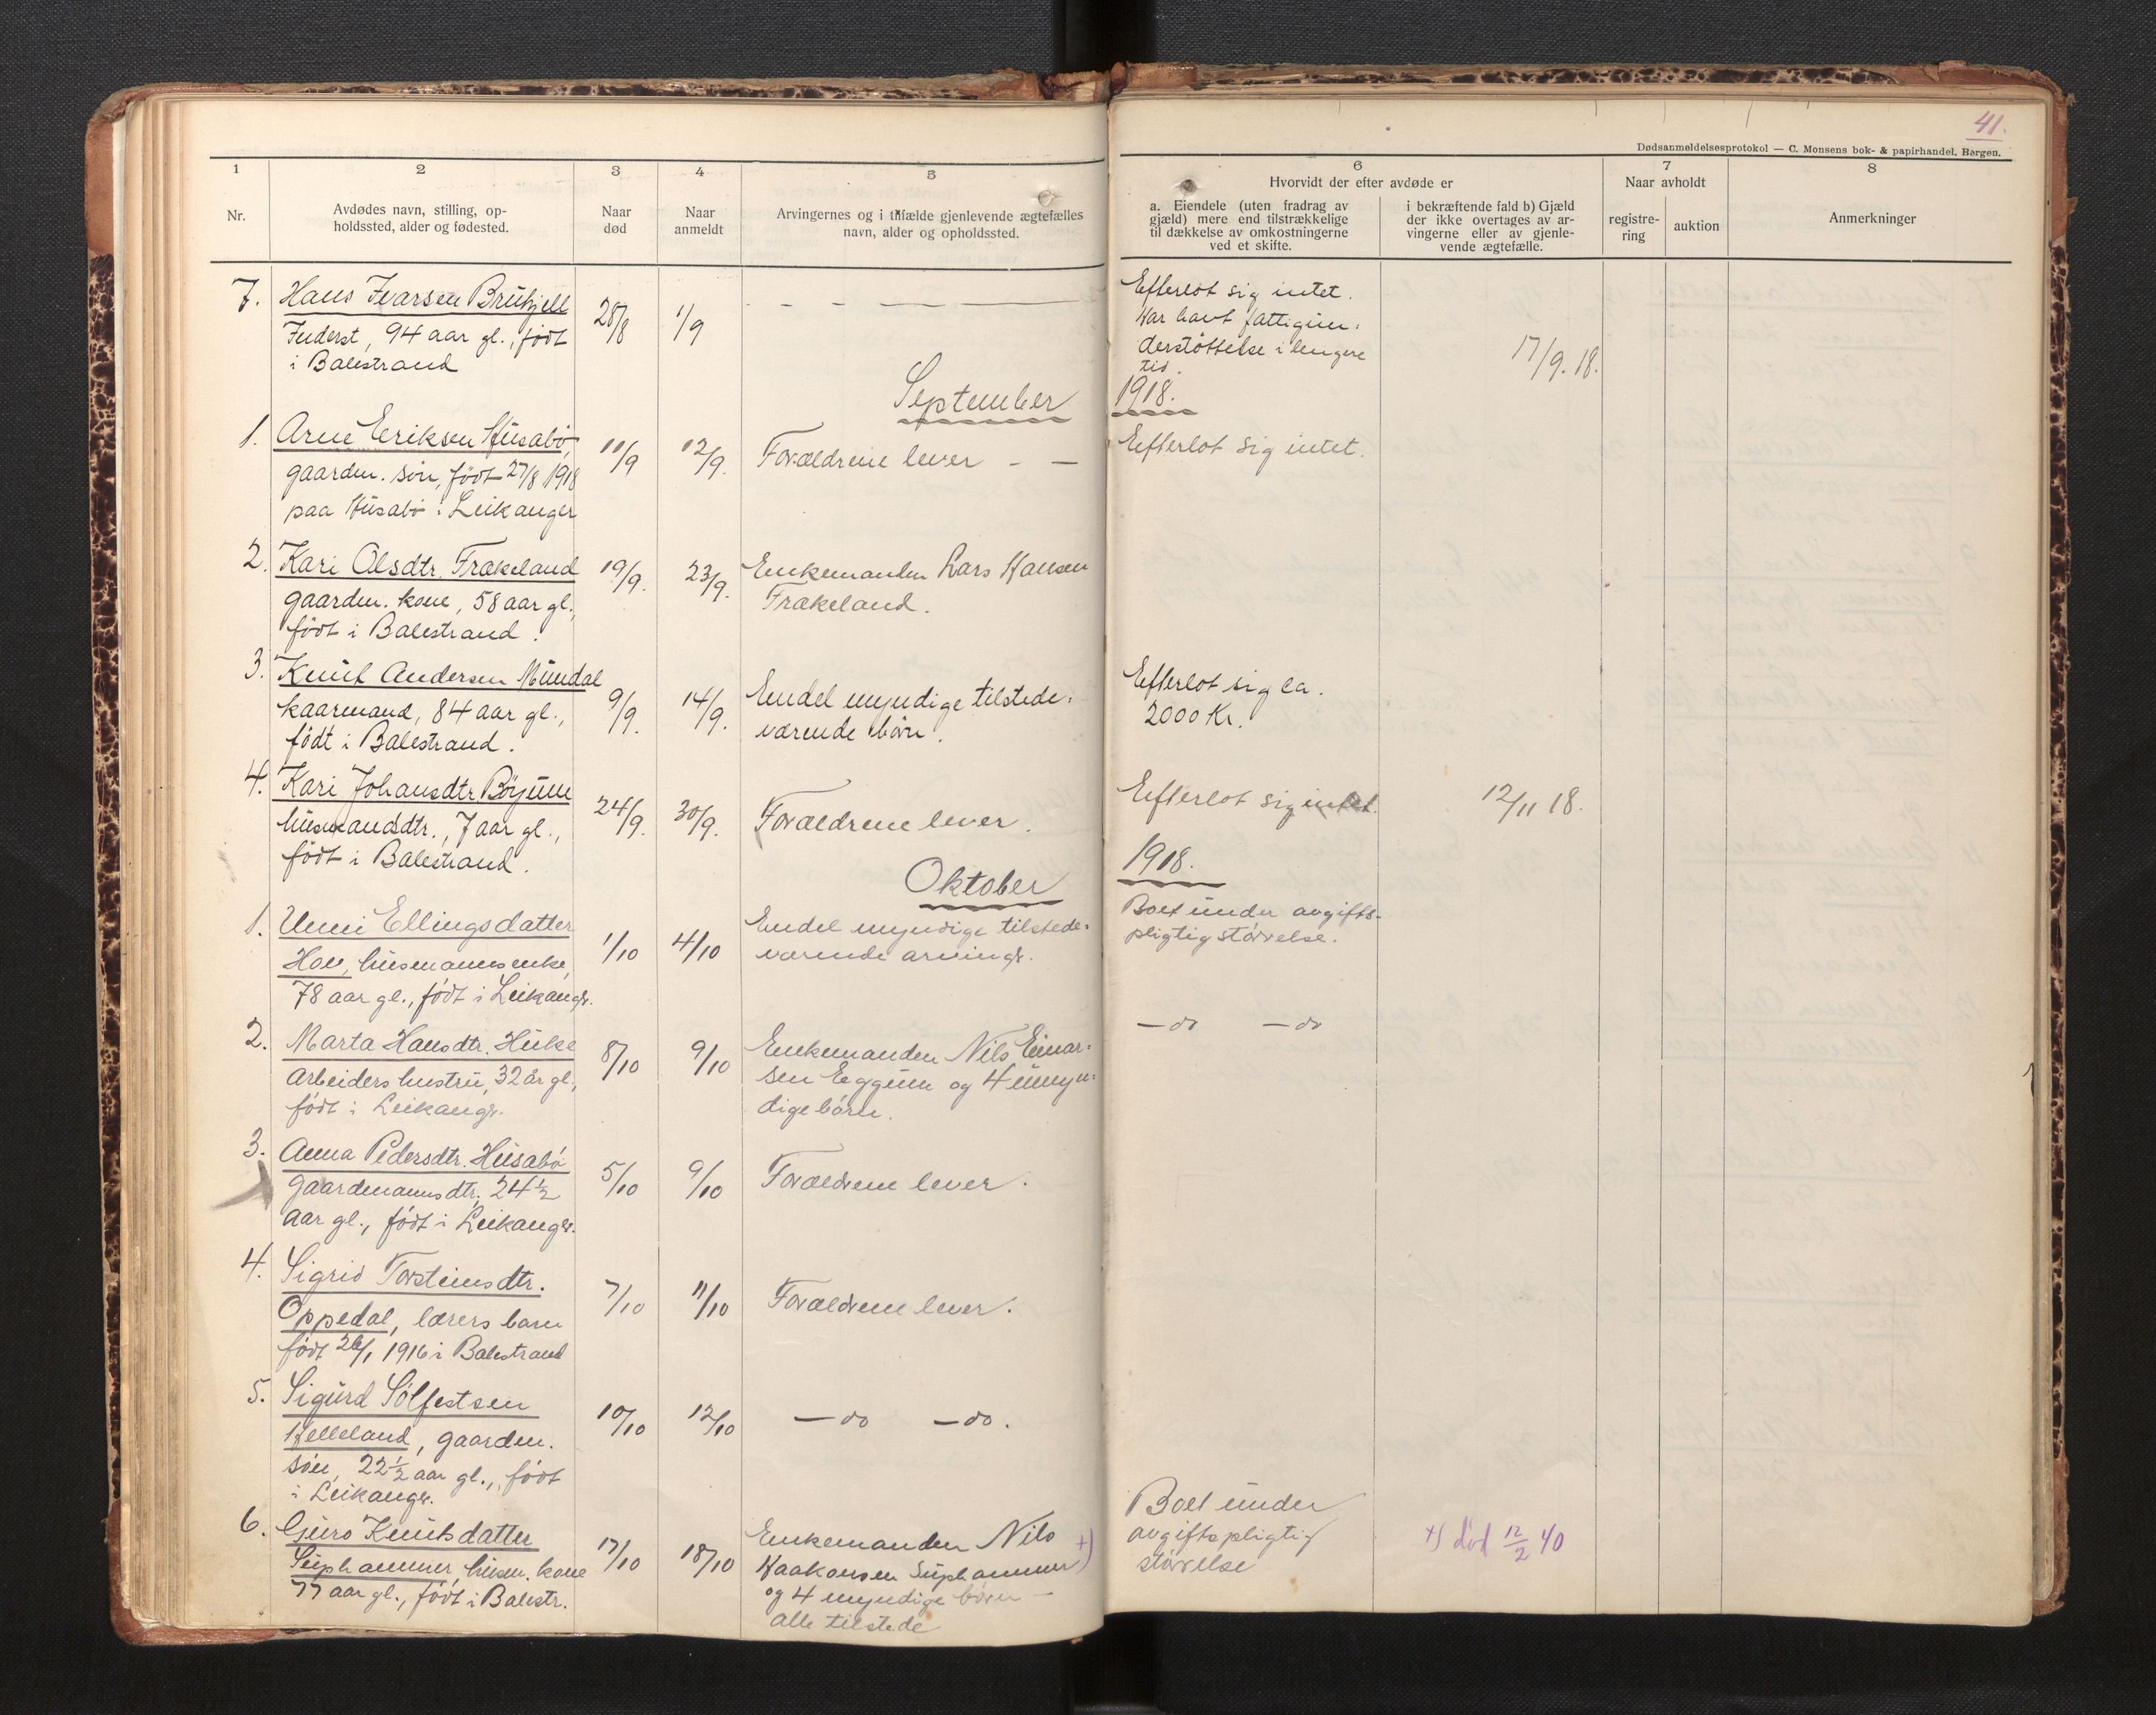 41.
Dødsanmeldelsesprotokol — C. Monsens bok- & papirhandel, Bergen.
1 2 3 4 5 6 7 8
Nr.
Avdødes navn, stilling, op-
holdssted, alder og fødested.
Naar
død
Naar
anmeldt
Arvingernes og i tilfælde gjenlevende ægtefælles
navn, alder og opholdssted.
Hvorvidt der efter avdøde er
a. Eiendele (uten fradrag av
gjæld) mere end tilstrækkelige
til dækkelse av omkostningerne
ved et skifte.
i bekræftende fald b) Gjæld
der ikke overtages av ar-
vingerne eller av gjenle-
vende ægtefælle.
Naar avholdt
registre-
ring
auktion
Anmerkninger
7. Hans Ivarsen Bruhjell 28/8 1/9 - - - - - -
Inderst, 94 aar gl., født
i Balestrand
Efterlot sig intet.
Har havt fattigun:
derstøttelse i lengere
tid.
17/9. 18.
September 1918.
1. Arne Eriksen Husabø, 11/9 12/9. Forældrene lever - - Efterlot sig intet.
gaardm. søn, født 27/8 1918
paa Husabø i Leikanger
2. Kari Olsdtr. Frakeland 19/9. 23/9. Enkemanden Lars Hansen
gaardm. kone, 58 aar gl., Frakeland.
født i Balestrand.
3. Knut Andersen Mundal 9/9. 14/9. Endel myndige tilstede:
kaarmand, 84 aar gl., værende børn.
født i Balestrand.
Efterlot sig ca.
2000 Kr.
4. Kari Johansdtr Bøyum 24/9. 30/9. Forældrene lever. Efterlot sig intet. 12/11 18.
husmandsdtr., 7 aar gl.,
født i Balestrand.
Oktober 1918.
1. Unni Ellingsdatter 1/10 4/10 Endel myndige tilstede:
Hov, husmannsenke, værende arvingr.
78 aar gl., født i Leikangr.
Boet under avgifts-
pligtig størrelse.
2. Marta Hansdtr. Huke 8/10 9/10 Enkemanden Nils Einar: — do — do
Arbeiders hustru, 32 år gl., sen Eggum og 4 umyn:
født i Leikangr. dige børn.
3. Anna Pedersdtr. Husabø 5/10 9/10 Forældrene lever.
gaardmannsdtr. 24½
aar gl., født i Leikangr.
4. Sigrid Torsteinsdtr. 7/10 11/10 Forældrene lever.
Oppedal, lærers barn
født 26/1 1916 i Balestrand
5. Sigurd Sølfestsen 10/10 12/10 — do — do.
Helleland, gaardm.
søn, 22½ aar gl., født
i Leikangr.
6. Guro Knutsdatter 17/10 18/10 Enkemanden Nils +)
Suphammer, husm. kone Haakonsen Suphammer
77 aar gl., født i Balestr. og 4 myndige børn —
alle tilstede
Boet under
avgiftspligtig
størrelse
+) død 12/2 40